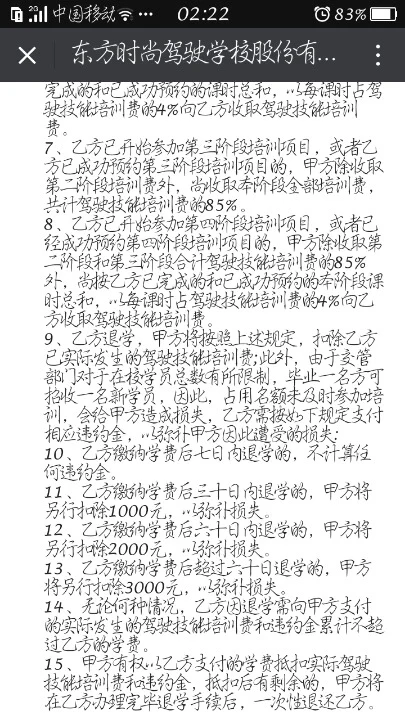 2G 中国移动 ... 02:22 83%
东方时尚驾驶学校股份有...
完成的和已成功预约的课时总和，以每课时占驾
驶技能培训费的4%向乙方收取驾驶技能培训
费。
7、乙方已开始参加第三阶段培训项目，或者乙
方已成功预约第三阶段培训项目的，甲方除收取
第二阶段培训费外，尚收取本阶段全部培训费，
共计驾驶技能培训费的85%。
8、乙方已开始参加第四阶段培训项目，或者已
经成功预约第四阶段培训项目的，甲方除收取第
二阶段和第三阶段合计驾驶技能培训费的85%
外，尚按乙方已完成的和已成功预约的本阶段课
时总和，以每课时占驾驶技能培训费的4%向乙
方收取驾驶技能培训费。
9、乙方退学，甲方将按照上述规定，扣除乙方
已实际发生的驾驶技能培训费;此外，由于交管
部门对于在校学员总数有所限制，毕业一名方可
招收一名新学员，因此，占用名额未及时参加培
训，会给甲方造成损失，乙方需按如下规定支付
相应违约金，以弥补甲方因此遭受的损失:
10、乙方缴纳学费后七日内退学的，不计算任
何违约金。
11、乙方缴纳学费后三十日内退学的，甲方将
另行扣除1000元，以弥补损失。
12、乙方缴纳学费后六十日内退学的，甲方将
另行扣除2000元，以弥补损失。
13、乙方缴纳学费后超过六十日退学的，甲方
将另行扣除3000元，以弥补损失。
14、无论何种情况，乙方因退学需向甲方支付
的实际发生的驾驶技能培训费和违约金累计不超
过乙方的学费。
15、甲方有权以乙方支付的学费抵扣实际驾驶
技能培训费和违约金，抵扣后有剩余的，甲方将
在乙方办理完毕退学手续后，一次性退还乙方。